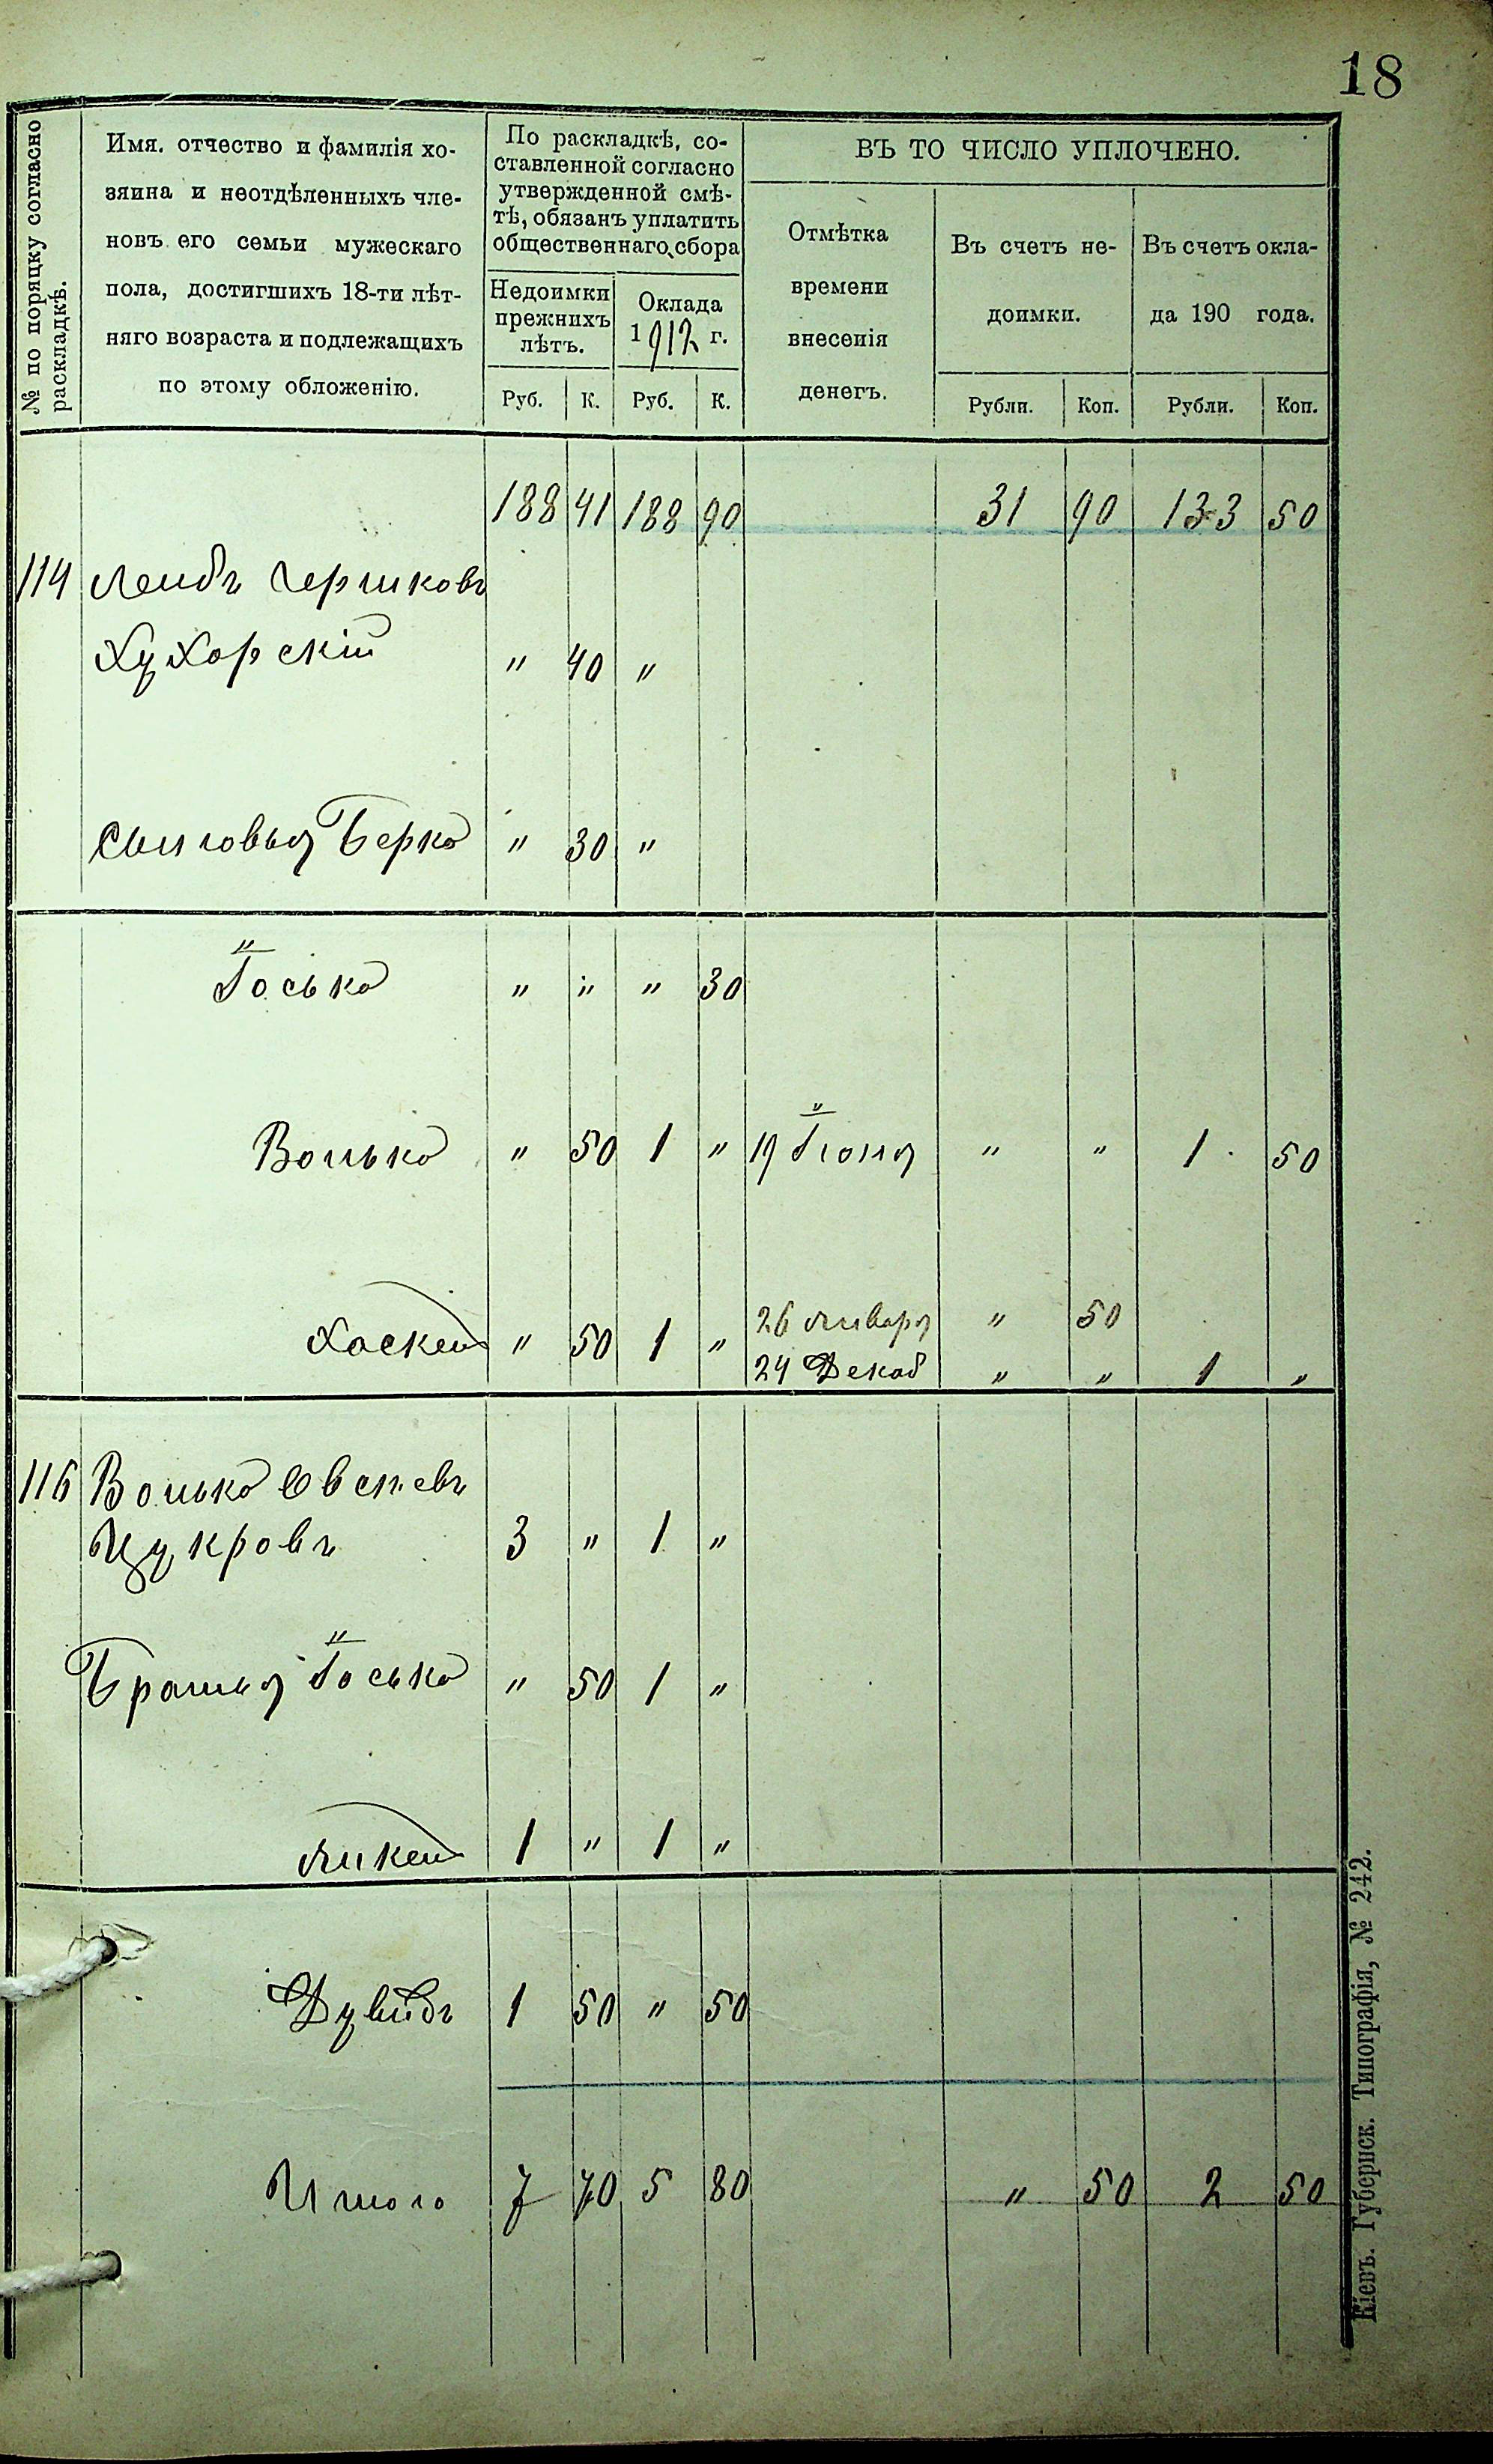 18
№ по поряцку согласно раскладкѣ.
Имя. отчество и фамилія хо-
зяина и неотдѣленныхъ чле-
новъ его семьи мужескаго
пола, достигшихъ 18-ти лѣт-
няго возраста и подлежащихъ
по этому обложенію.
По раскладкѣ, со-
ставленной согласно
утвержденной смѣ-
тѣ, обязанъ уплатить
общественнаго сбора
Недоимки
прежнихъ
лѣтъ.
Оклада
1912 г.
Руб. К. Руб. К.
ВЪ ТО ЧИСЛО УПЛОЧЕНО.
Отмѣтка
времени
внесенія
денегъ.
Въ счетъ не-
доимки.
Въ счетъ окла-
да 190 года.
Рубли. Коп. Рубли. Коп.
188 41 188 90 31 90 133 50
114 Лейбъ Гершковъ
Хухорскій " 40 "
Сыновья Берко " 30 "
Іосько " " " 30
Волько " 50 1 " 19 Іюня " " 1 50
Хаскель " 50 1 " 26 Января " 50
24 Декаб " " 1 "
116 Волько
Цукровъ 3 " 1 "
Братья Іосько " 50 1 "
Янкель 1 " 1 "
Дувидъ 1 50 " 50
Итого 7 70 5 80 " 50 2 50
Кіевъ. Губернск. Типографія, № 242.